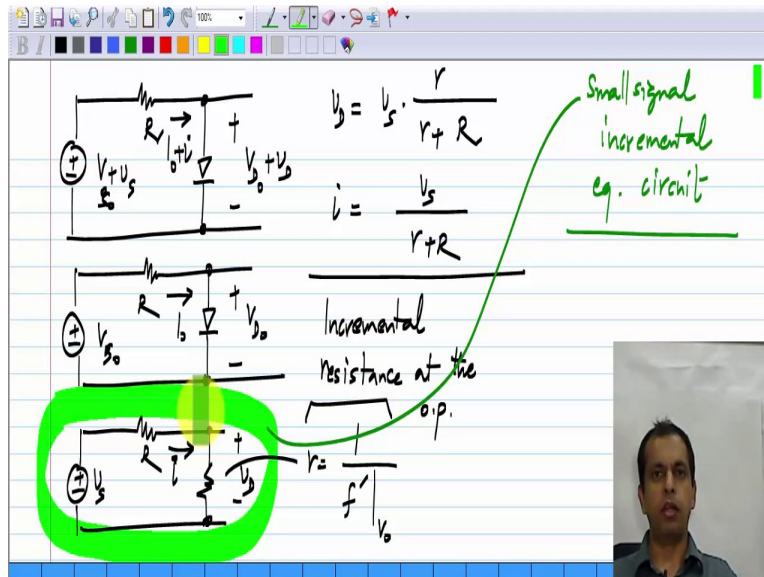 100%
B I
R
I₀+i
+
V_S₀+υ_S
V_D₀+υ_D
-
υ_D = υ_S · r / (r + R)
i = υ_S / (r + R)
Small signal
incremental
eq. circuit
R
I₀
+
V_S₀
V_D₀
-
Incremental
resistance at the
o.p.
R
i
+
υ_S
υ_D
-
r = 1 / f′ |V₀